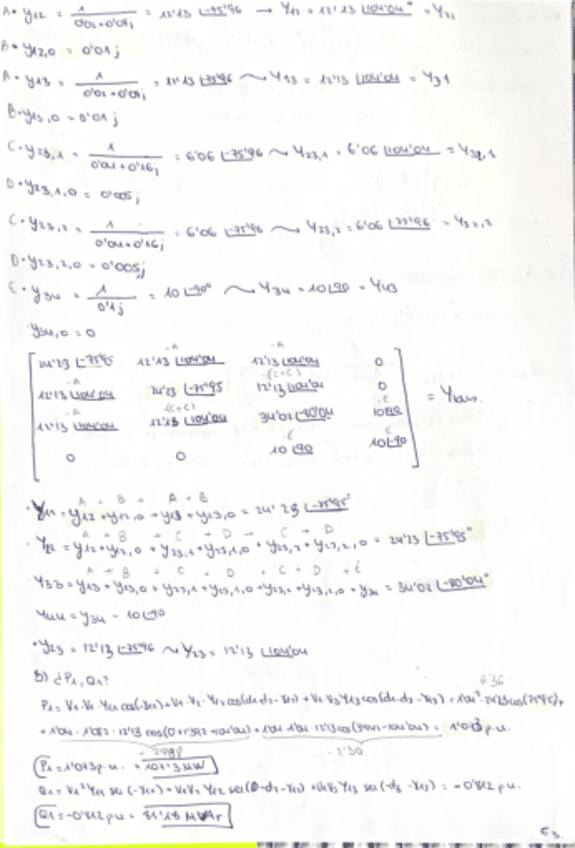 A• y12 = 1/(0'02+0'08j) = 12'13 ∠-75'96 → Y12 = 12'13 ∠104'04° = Y21
B• y12,0 = 0'01j
A• y13 = 1/(0'02+0'08j) = 12'13 ∠-75'96 ⤳ Y13 = 12'13 ∠104'04 = Y31
B• y13,0 = 0'01j
C• y23,1 = 1/(0'04+0'16j) = 6'06 ∠-75'96 ⤳ Y23,1 = 6'06 ∠104'04 = Y32,1
D• y23,1,0 = 0'005j
C• y23,2 = 1/(0'04+0'16j) = 6'06 ∠-75'96 ⤳ Y23,2 = 6'06 ∠75'96 = Y32,2
D• y23,2,0 = 0'005j
E• y34 = 1/0'1j = 10 ∠-90° ⤳ Y34 = 10∠90 = Y43
y34,0 = 0
-A -A
24'23 ∠-75'95 12'13 ∠104'04 12'13 ∠104'04 0
-A -(C+C)
12'13 ∠104'04 24'23 ∠-75'95 12'13 ∠104'04 0
= Ybus.
-A -(C+C) -E
12'13 ∠104'04 12'13 ∠104'04 34'02 ∠-80'04 10∠90
-E
0 0 10 ∠90 10∠-90
A + B + A + B
• Y11 = y12 + y12,0 + y13 + y13,0 = 24'23 ∠-75'95°
A + B + C + D + C + D
• Y22 = y12 + y12,0 + y23,1 + y23,1,0 + y23,2 + y23,2,0 = 24'23 ∠-75'95°
A + B + C + D + C + D + E
Y33 = y13 + y13,0 + y23,1 + y23,1,0 + y23,2 + y23,2,0 + y34 = 34'02 ∠-80'04°
Y44 = y34 = 10∠-90
• y23 = 12'13 ∠-75'96 ⤳ Y23 = 12'13 ∠104'04
b) ¿P1, Q1?
6'36
P1 = V1·V1·Y11 cos(-γ11) + V1·V2·Y12 cos(d1-d2-γ12) + V1V3 Y13 cos(d1-d3-γ13) = 1'04²·24'23 cos(75'95) +
1'013 p.u.
-2'30
P1 =
Q1 = V1² Y11 sen(-γ11) + V1V2 Y12 sen(0-d2-γ12) + V1V3 Y13 sen(-d3-γ13) = -0'812 p.u.
Q1 = -0'812 p.u =